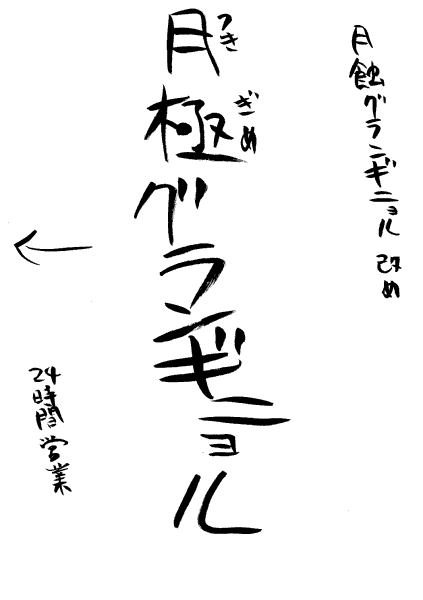 月蝕グランギニョル 改め
月極グランギニョル
つき
ぎめ
24時間営業